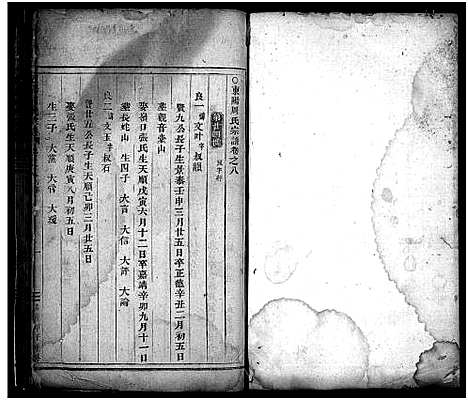 ○東陽周氏宗譜卷之八
良一諱文叶字叔韻
賢九公長子生景泰壬申三月廿五日卒正德辛丑二月初五日
塟觀音臺山
娶 口張氏生天順戊寅六月十二日卒嘉靖辛卯九月十一日
塟長蛇山 生四子 大言 大信 大評 大論
良二諱文玉字叔石
賢廿五公長子生天順己卯三月廿五日
娶張氏生天順庚寅八月初五日
生三子 大黨 大常 大